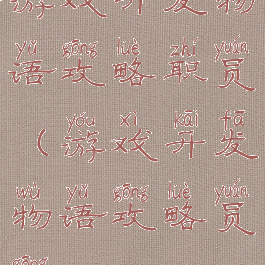 游戏开发物
yǔ gōng lüè zhí yuán
语攻略职员
yóu xì kāi fā
（游戏开发
wù yǔ gōng lüè yuán
物语攻略员
gōng